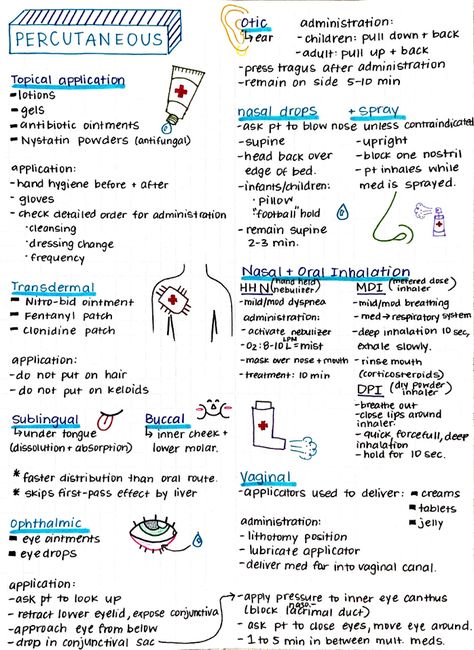 PERCUTANEOUS
Topical application
- lotions
- gels
- antibiotic ointments
- Nystatin powders (antifungal)
application:
- hand hygiene before + after
- gloves
- check detailed order for administration
· cleansing
· dressing change
· frequency
Transdermal
- Nitro-bid ointment
- Fentanyl patch
- Clonidine patch
application:
- do not put on hair
- do not put on keloids
Sublingual
↳ under tongue
(dissolution + absorption)
Buccal
↳ inner cheek +
lower molar.
* faster distribution than oral route.
* skips first-pass effect by liver
Ophthalmic
- eye ointments
- eye drops
application:
- ask pt to look up
- retract lower eyelid, expose conjunctiva
- approach eye from below
- drop in conjunctival sac
otic
↳ ear
administration:
- children: pull down + back
- adult: pull up + back
- press tragus after administration
- remain on side 5-10 min
nasal drops + spray
- ask pt to blow nose unless contraindicated
- supine
- head back over
edge of bed.
- infants/children:
· pillow
· "football" hold
- remain supine
2-3 min.
- upright
- block one nostril
- pt inhales while
med is sprayed.
Nasal + Oral Inhalation
HHN (hand held nebulizer)
- mild/mod dyspnea
administration:
- activate nebulizer
- O2: 8-10 LPM = mist
- mask over nose + mouth
- treatment: 10 min
MDI (metered dose inhaler)
- mild/mod breathing
- med → respiratory system
- deep inhalation 10 sec,
exhale slowly.
- rinse mouth
(corticosteroids)
DPI (dry powder inhaler)
- breathe out
- close lips around
inhaler.
- quick, forcefull, deep
inhalation
- hold for 10 sec.
Vaginal
- applicators used to deliver:
- creams
- tablets
- jelly
administration:
- lithotomy position
- lubricate applicator
- deliver med far into vaginal canal.
- apply pressure to inner eye canthus
(block naso-lacrimal duct)
- ask pt to close eyes, move eye around.
- 1 to 5 min in between mult. meds.